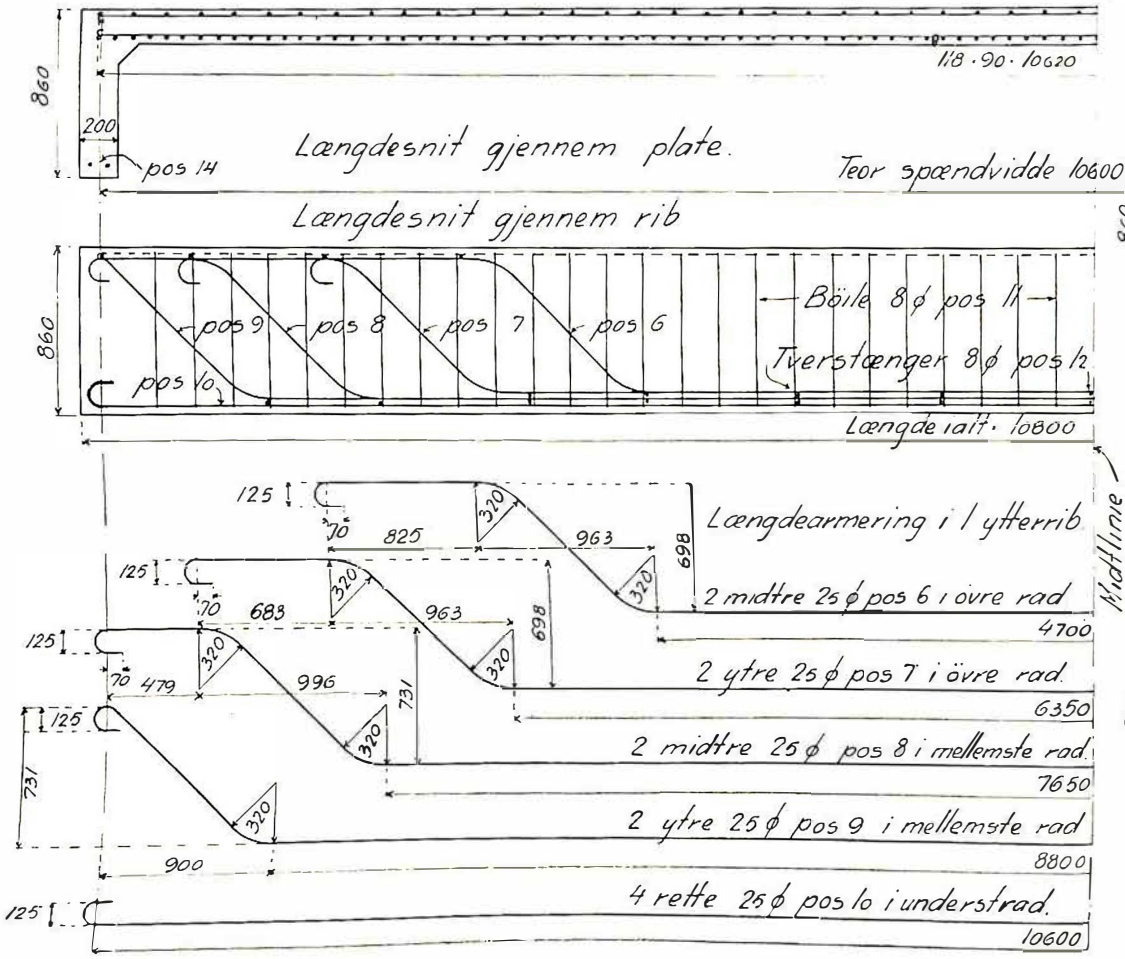 118 · 90 · 10620
860
200
pos 14
Længdesnit gjennem plate.
Teor spændvidde 10600
Længdesnit gjennem rib
860
860
Böile 8 ϕ pos 11
pos 9
pos 8
pos 7
pos 6
Tverstænger 8 ϕ pos 12
pos 10
Længde ialt · 10800
Midtlinie
125
320
70
825
963
320
698
Længdearmering i 1 ytterrib
2 midtre 25 ϕ pos 6 i övre rad
4700
125
320
70
683
963
320
698
2 ytre 25 ϕ pos 7 i övre rad.
6350
125
320
70
479
996
320
731
2 midtre 25 ϕ pos 8 i mellemste rad.
7650
125
731
320
900
2 ytre 25 ϕ pos 9 i mellemste rad
8800
125
4 rette 25 ϕ pos 10 i understrad.
10600